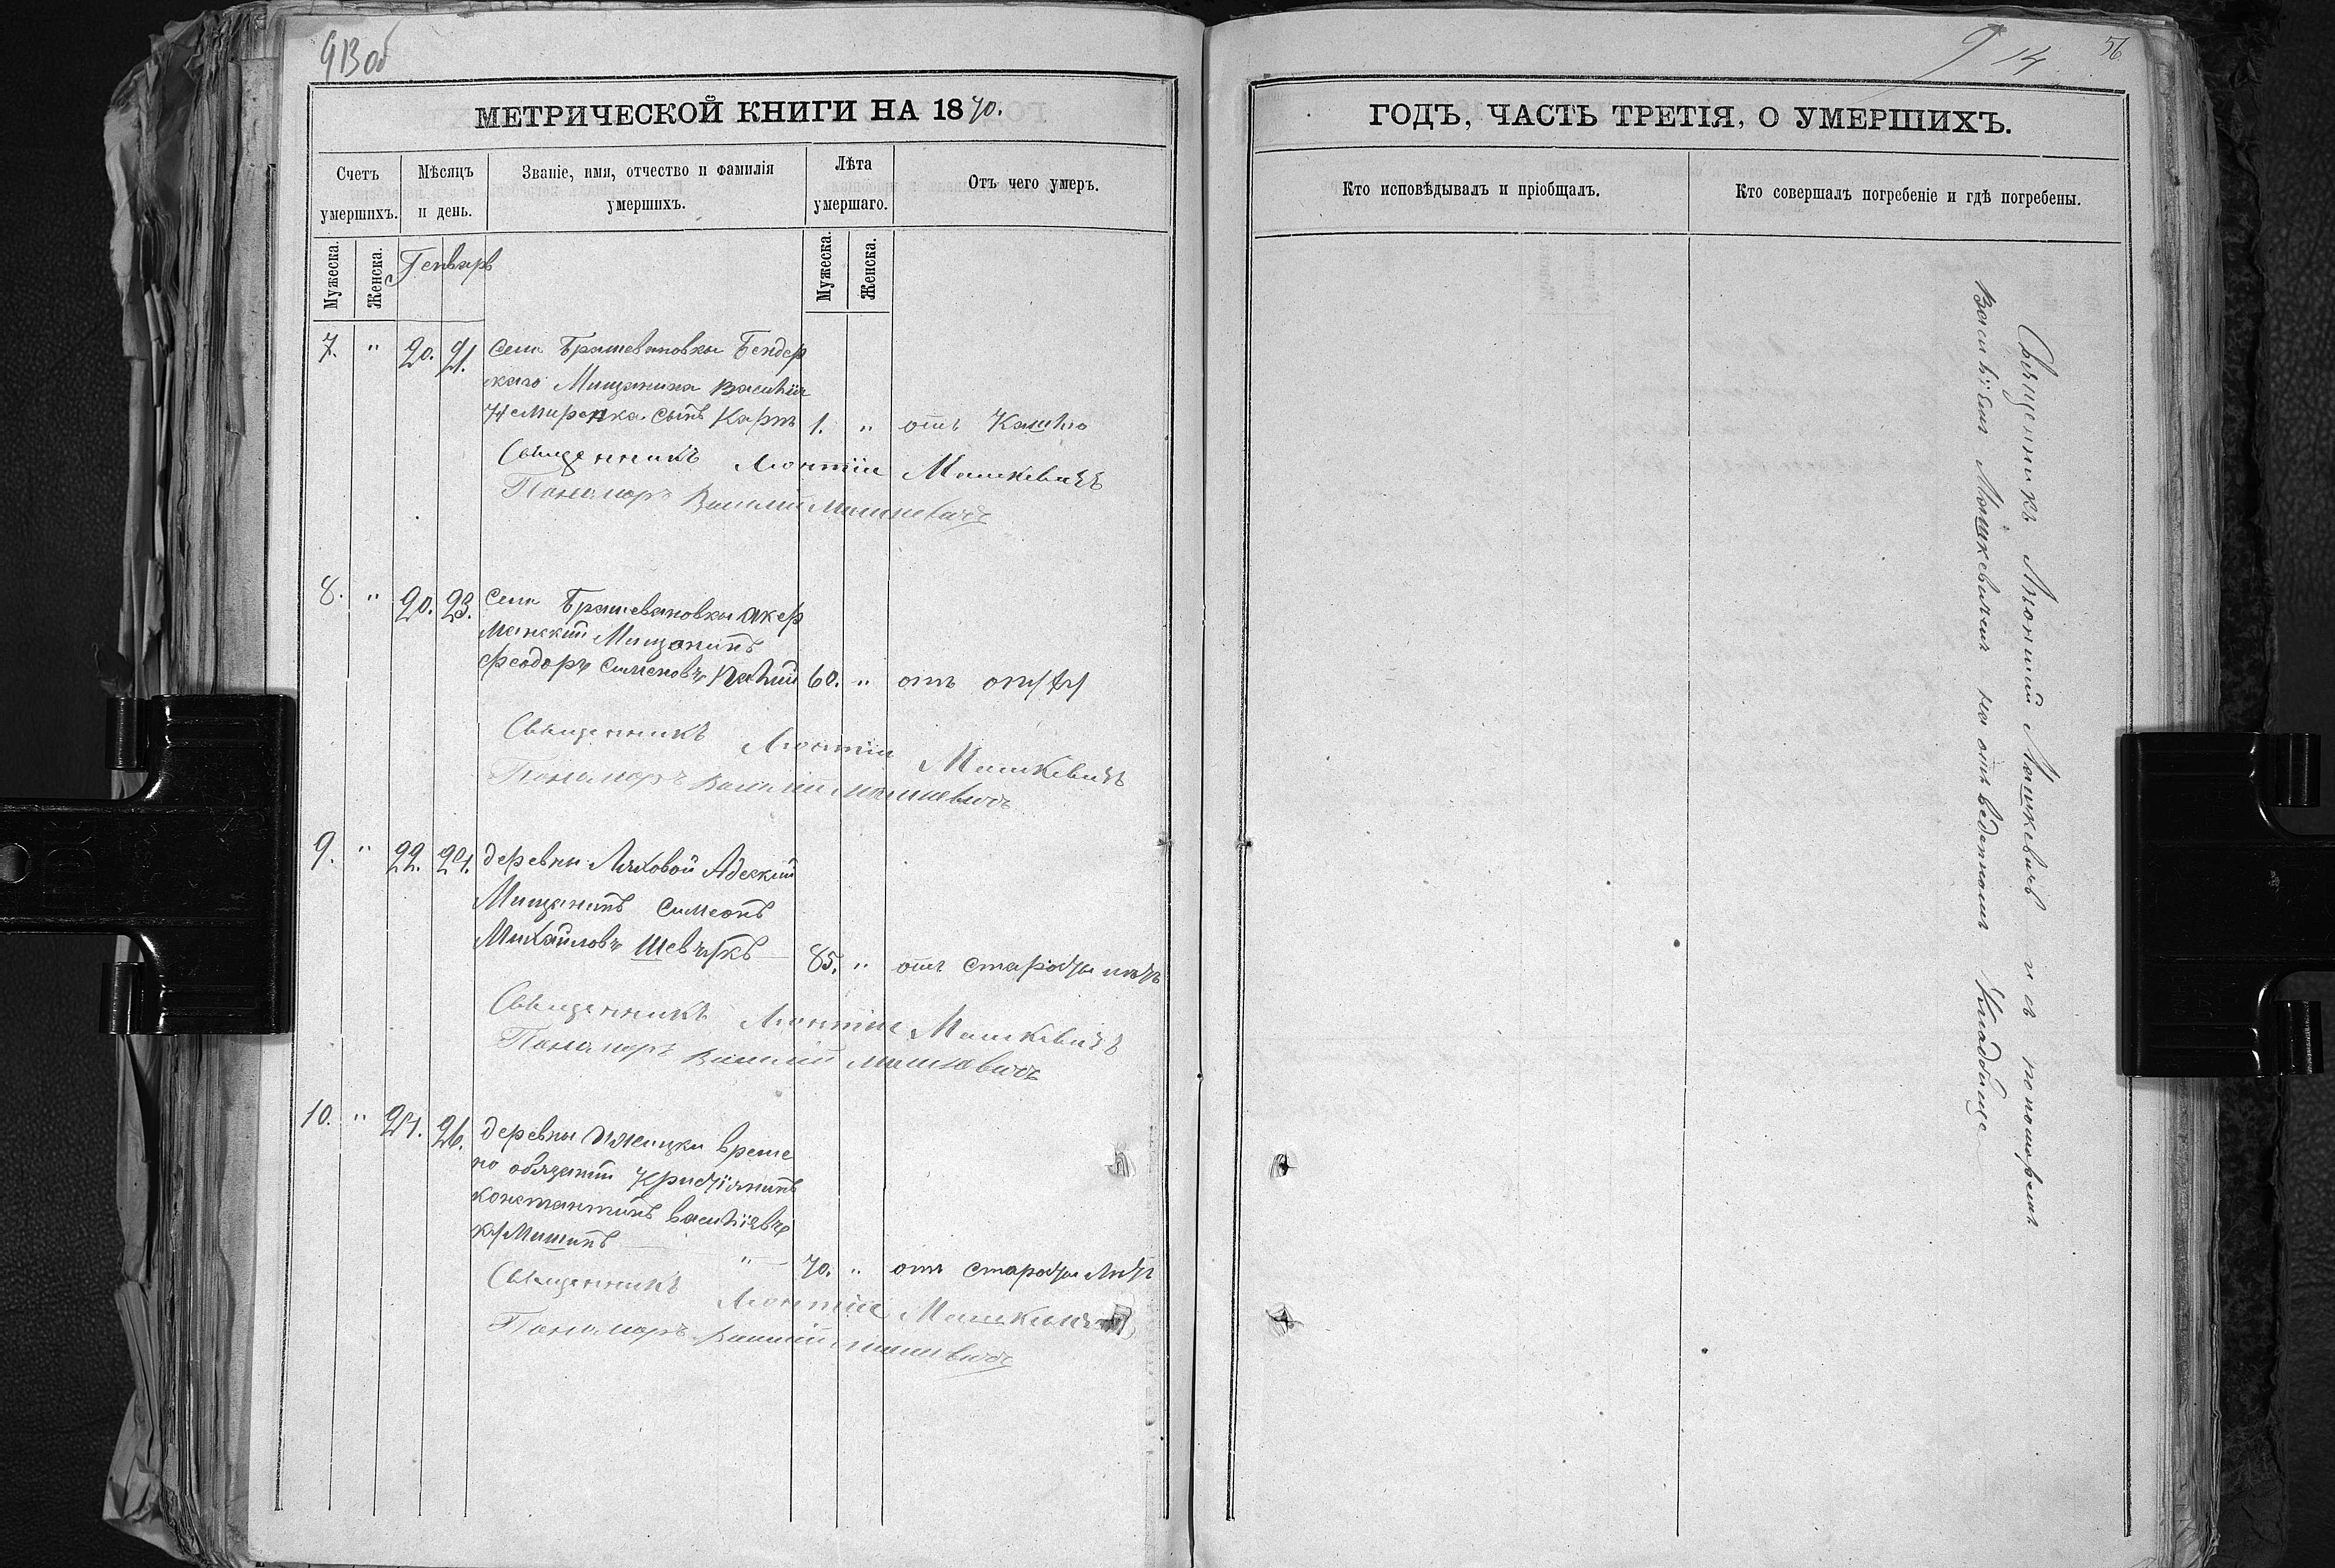 913 об
МЕТРИЧЕСКОЙ КНИГИ НА 1870.
Счетъ умершихъ.
Мѣсяцъ и день.
Званіе, имя, отчество и фамилія умершихъ.
Лѣта умершаго.
Отъ чего умеръ.
Мужеска.
Женска.
Генварь
Мужеска.
Женска.
7. " 20. 21. Села Брашевановки Бендер
скаго Мищанина Василія
Немиренка сынъ Карпъ 1. " отъ Кашлю
Священникъ Леонтій Машкевичъ
Пономарь Василій Машкевичъ
8. " 20. 23. Села Брашевановки Акер
манскій Мищанинъ
Феодоръ Симеоновъ 60. " отъ
Священникъ Леонтій Машкевичъ
Пономарь Василій Машкевичъ
9. " 22. 24. деревни Ляховой Адескій
Мищанинъ Симеонъ
Михайловъ Шевчукъ 85. " отъ Старости лѣтъ
Священникъ Леонтій Машкевичъ
Пономарь Василій Машкевичъ
10. " 24. 26. деревни време
но обязаный Христіянинъ
Константинъ Василіевъ
" 70. " отъ Старости Лѣтъ
Священникъ Леонтій Машкевичъ
Пономарь Василій Машкевичъ
914
56
ГОДЪ, ЧАСТЬ ТРЕТІЯ, О УМЕРШИХЪ.
Кто исповѣдывалъ и пріобщалъ.
Кто совершалъ погребеніе и гдѣ погребены.
Священникъ Леонтій Машкевичъ и съ пономаремъ
Василіемъ Машкевичемъ на отведенномъ Кладбище